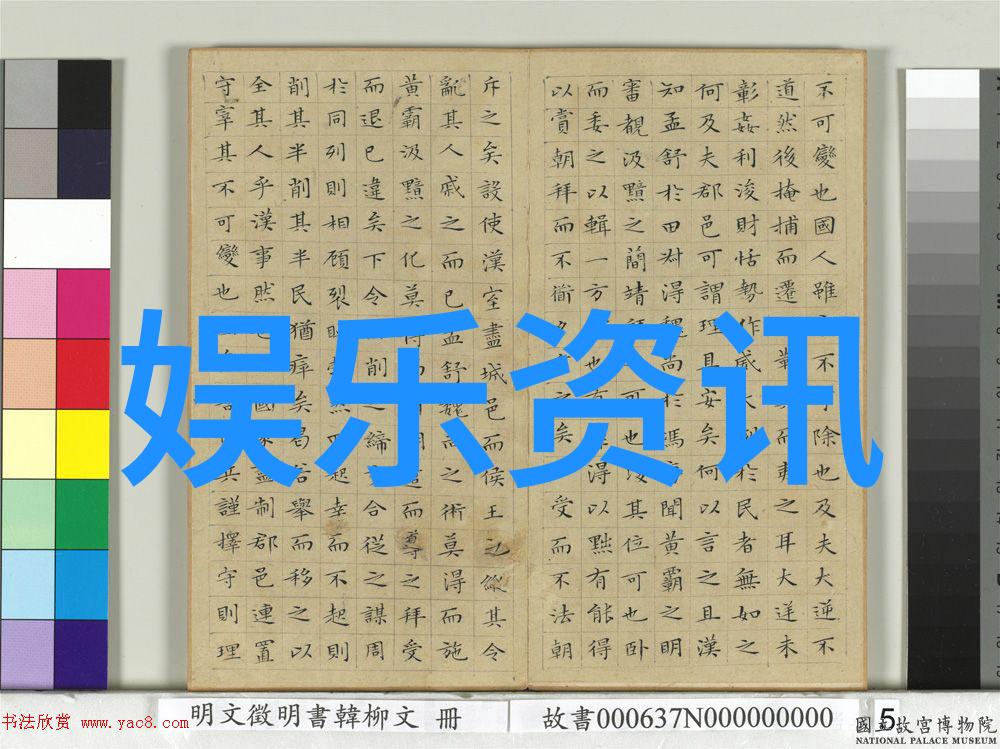 不可變也國人雖不除也及夫大逆不
道然後掩捕而遷而夷之耳大逆未
彰姦利浚財怙勢作威大於民者無如之
何及夫郡邑可謂理且安矣何以言之且漢
知孟舒於田尗得魏尚於馮聞黃霸之明
審覩汲黯之簡靖可也復其位可也臥
而委之以輯一方也有得以黜有能得
以賞朝拜而不矣受而不法朝
斥之矣設使漢室盡城邑而侯王之縱其令
亂其人戚之而已孟舒魏之術莫得而施
黃霸汲黯之化莫而道守之拜受
而退已違矣下令削之締合從之謀周
於同列則相顧裂起幸而不起則
削其半削其半民猶瘁矣曷若舉而移之以
全其人乎漢事然國盡制郡邑連置
守宰其不可變也謹擇守則理
娱乐资讯
书法欣赏 www.yac8.com
明文徵明書韓柳文 冊
故書000637N000000000
5
國立故宮博物院
NATIONAL PALACE MUSEUM